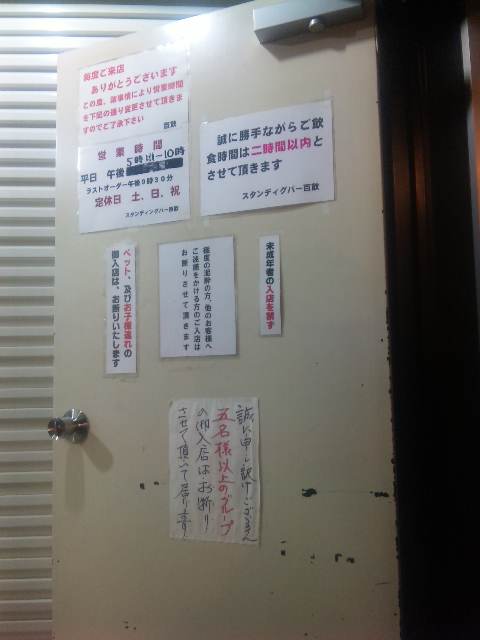 毎度ご来店
ありがとうございます
この度、諸事情により営業時間
を下記の通り変更させて頂きま
すのでご了承下さい
百飲
営業時間
平日 午後 5時
10時
ラストオーダー午後9時30分
定休日 土、日、祝
スタンディングバー百飲
誠に勝手ながらご飲
食時間は二時間以内と
させて頂きます
スタンディグバー百飲
ペット、及びお子様連れの
御入店は、お断りいたします
極度の泥酔の方、他のお客様へ
ご迷惑をかける方のご入店は
お断りさせて頂きます
未成年者の入店を禁ず
誠に申し訳ございません
五名様以上のグループ
の御入店はお断り
させて頂いて居ります